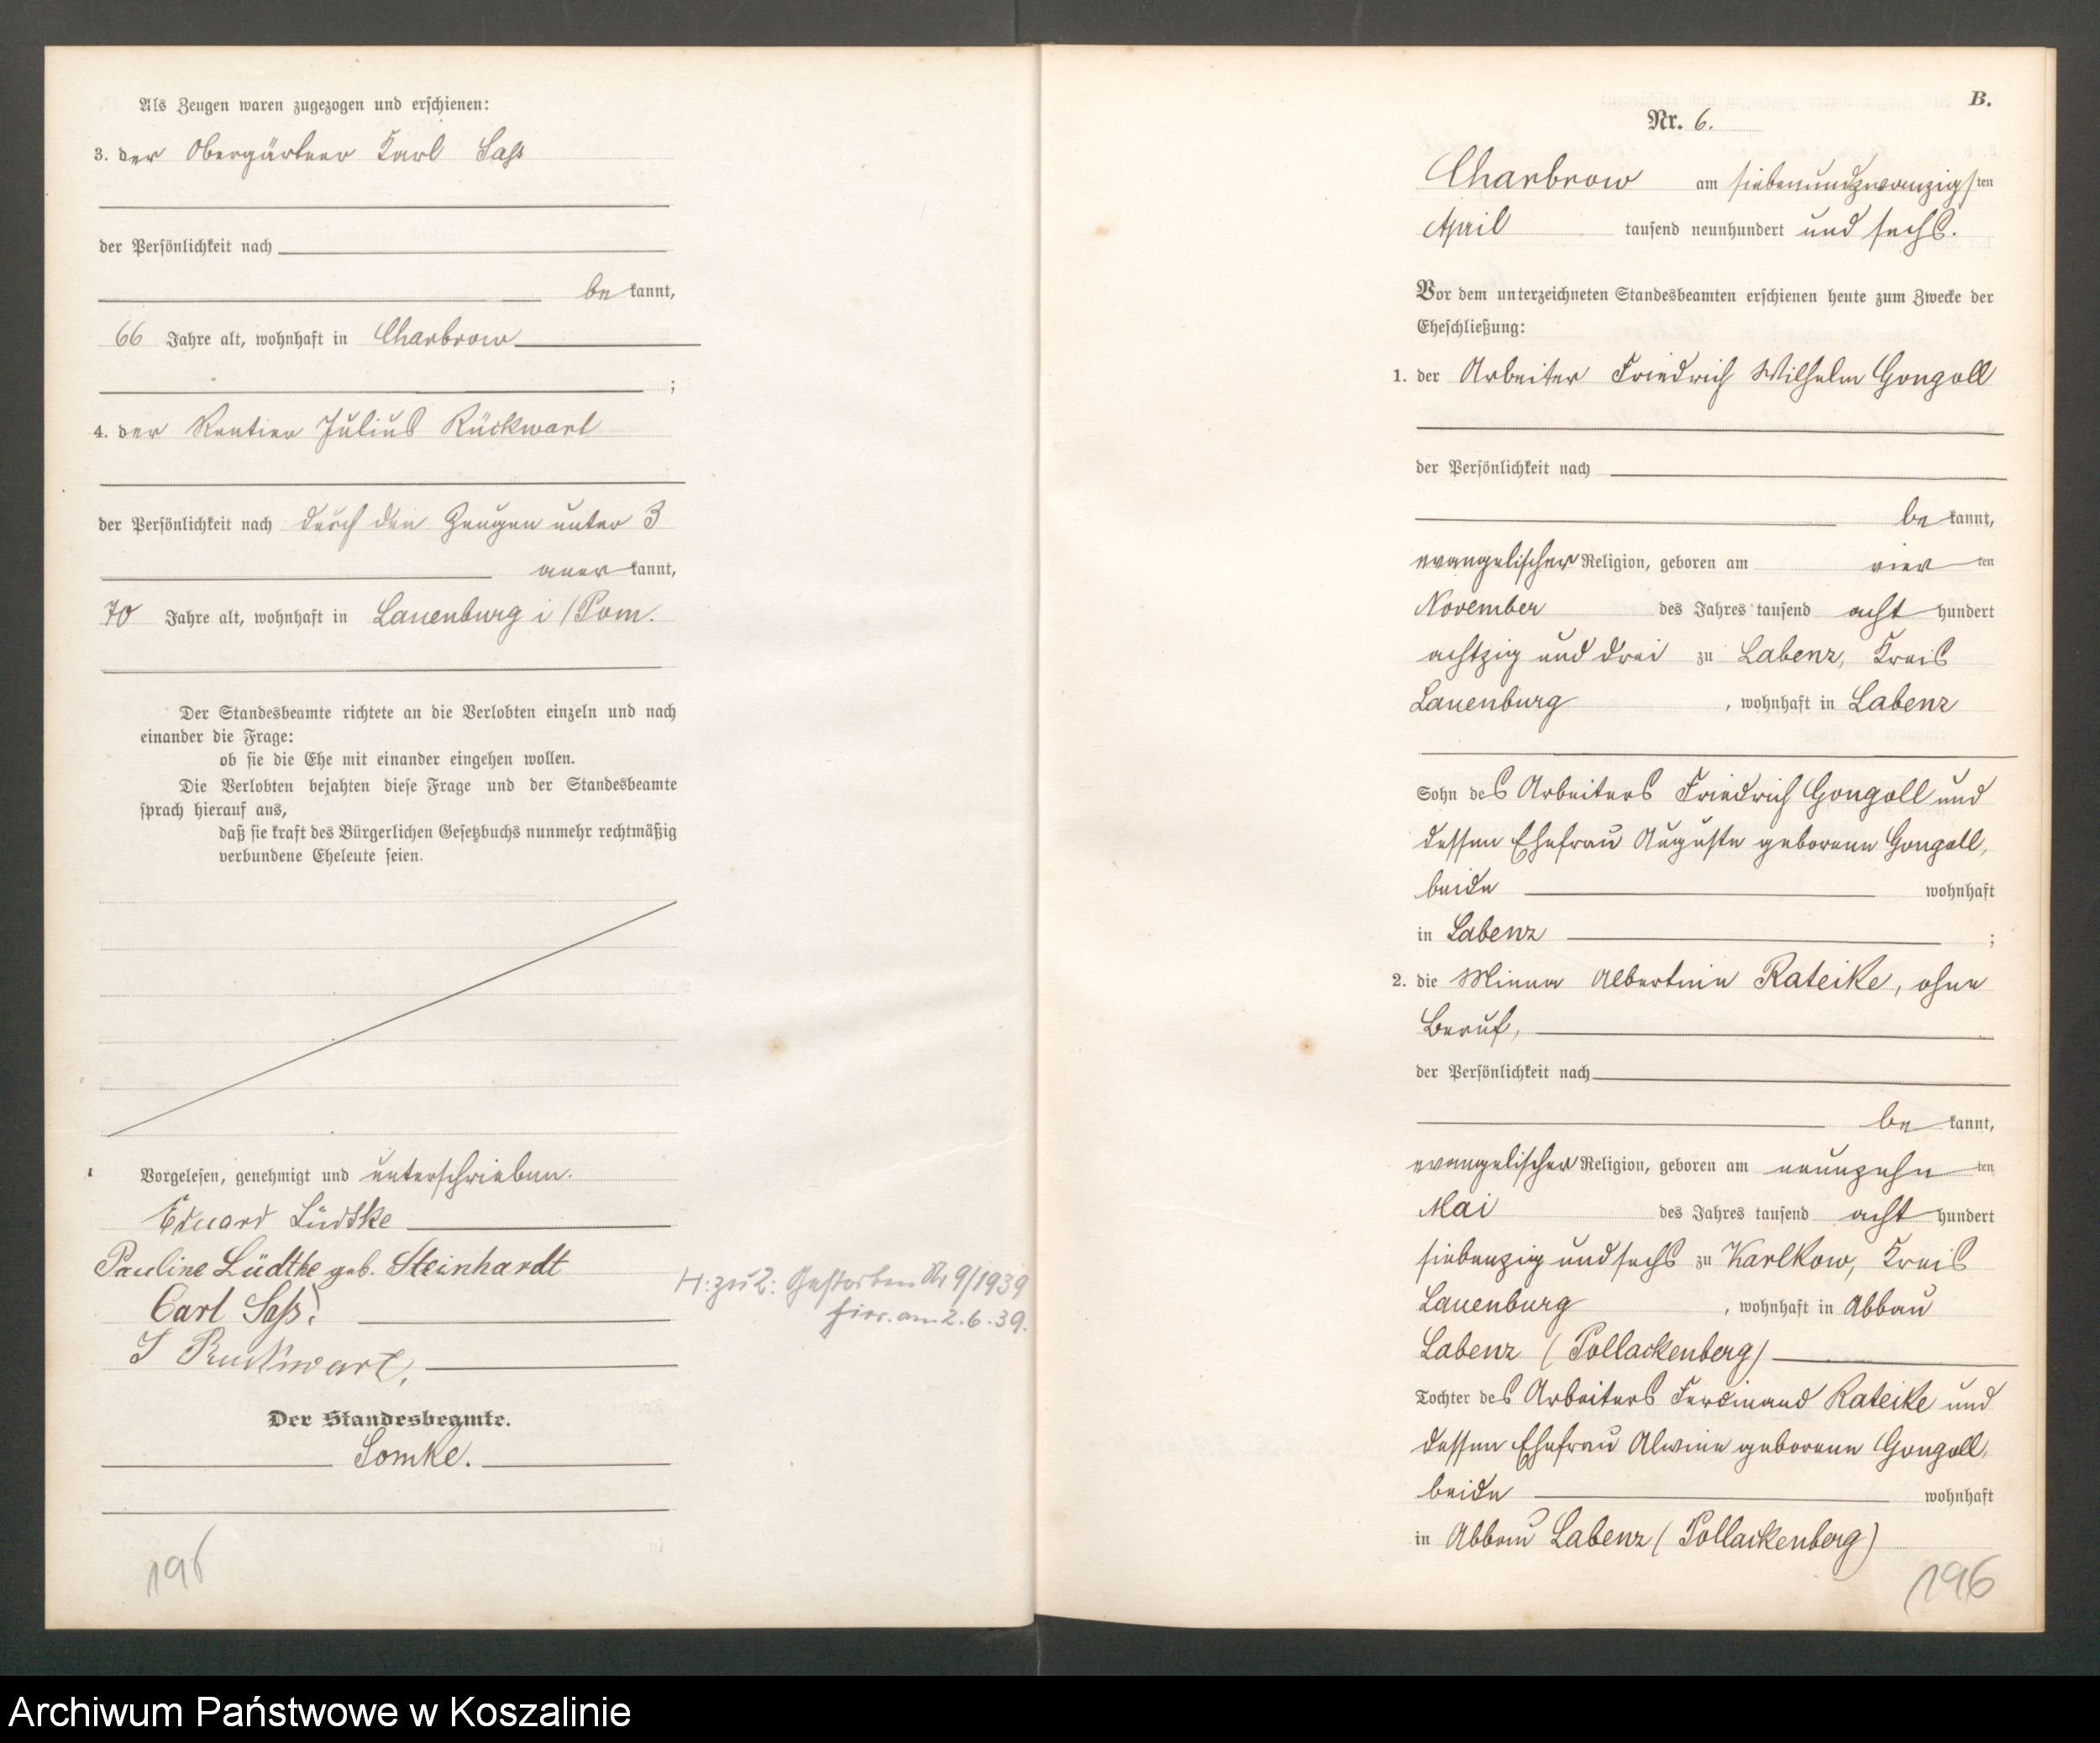 Als Zeugen waren zugezogen und erschienen:
3. der Obergärtner Karl Saß
der Persönlichkeit nach
be kannt,
66 Jahre alt, wohnhaft in Charbrow
;
4. der Rentier Julius Rückwart
der Persönlichkeit nach durch den Zeugen unter 3
aner kannt,
70 Jahre alt, wohnhaft in Lauenburg i/Pom.
Der Standesbeamte richtete an die Verlobten einzeln und nach
einander die Frage:
ob sie die Ehe mit einander eingehen wollen.
Die Verlobten bejahten diese Frage und der Standesbeamte
sprach hierauf aus,
daß sie kraft des Bürgerlichen Gesetzbuchs nunmehr rechtmäßig
verbundene Eheleute seien.
Vorgelesen, genehmigt und unterschrieben.
Eduard Lüdtke
Pauline Lüdtke geb. Steinhardt
Carl Saß.
J Rückwart,
Der Standesbeamte.
Somke.
H: zu 2: Gestorben Nr 9/1939
hier. am 2.6.39.
195
B.
Nr. 6.
Charbrow am siebenundzwanzigsten
April tausend neunhundert und sechs.
Vor dem unterzeichneten Standesbeamten erschienen heute zum Zwecke der
Eheschließung:
1. der Arbeiter Friedrich Wilhelm Gongoll
der Persönlichkeit nach
be kannt,
evangelischer Religion, geboren am vier ten
November des Jahres tausend acht hundert
achtzig und drei zu Labenz, Kreis
Lauenburg, wohnhaft in Labenz
Sohn des Arbeiters Friedrich Gongoll und
dessen Ehefrau Auguste geborene Gongoll,
beide wohnhaft
in Labenz ;
2. die Minna Albertine Rateike, ohne
Beruf,
der Persönlichkeit nach
be kannt,
evangelischer Religion, geboren am neunzehn ten
Mai des Jahres tausend acht hundert
siebenzig und sechs zu Karlkow, Kreis
Lauenburg, wohnhaft in Abbau
Labenz (Pollackenberg)
Tochter des Arbeiters Ferdinand Rateike und
dessen Ehefrau Alwine geborene Gongoll,
beide wohnhaft
in Abbau Labenz (Pollackenberg)
196
Archiwum Państwowe w Koszalinie